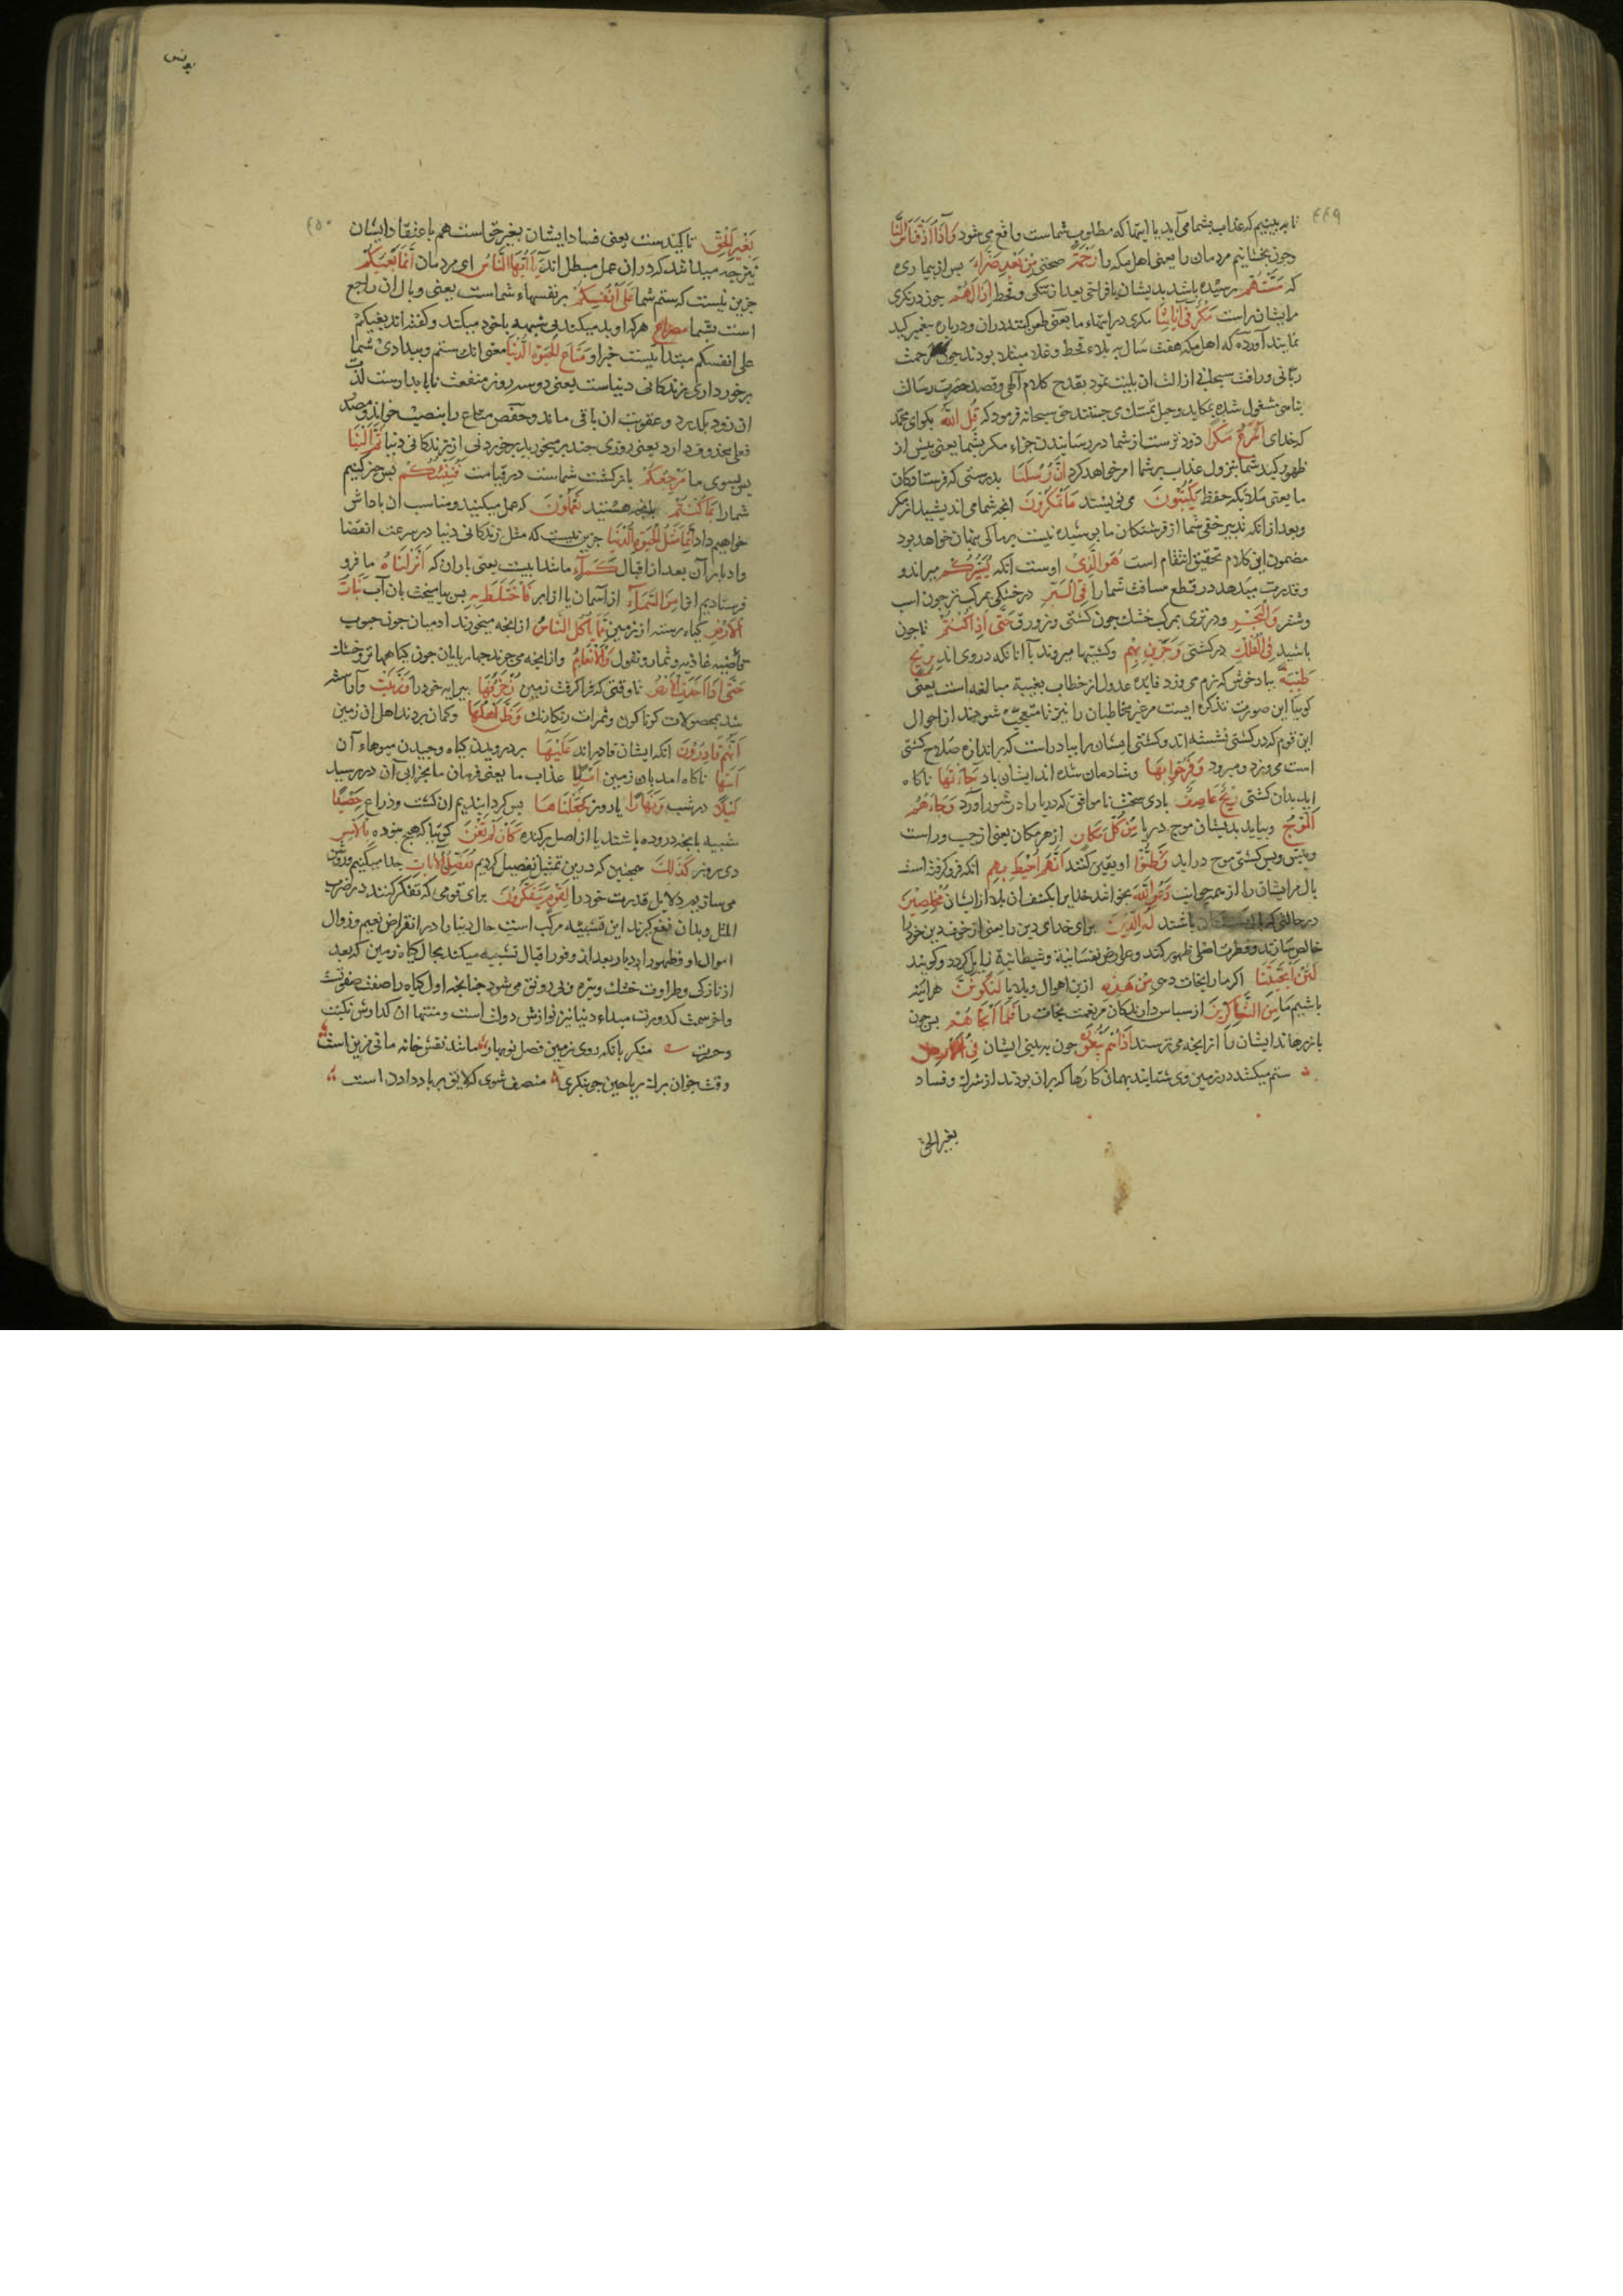 ٤٤٩
تا به بینیم که عذاب بشما می آید یا اینها که مطلوب شماست واقع می شود وَاِذَا اَذَقْنَا النَّاسَ
وچون بخشانیم مردمان را یعنی اهل مکه را رَحْمَةً صحتی مِنْ بَعْدِ ضَرَّاءَ پس از بیماری
که مَسَّتْهُمْ رسیده باشد بدیشان یا فراخی بعد از تنکی وقحط اِذَا لَهُمْ چون درنکری
مرایشانراست مَكْرٌ فِی اٰیَاتِنَا مکری در ایتهاء ما یعنی طعن کنند دران ودرباره پیغمبر کید
نمایند آورده که اهل مکه هفت سال به بلاء قحط وغلا مبتلا بودند چون رحمت
ربانی ورافت سبحانی ازالت ان بلیت نمود بقدح کلام آلهی وقصد حضرت رسالت
پناهی مشغول شده بمکاید وحیل تمسک می جستند حق سبحانه فرمود که قُلِ اللّٰهُ بکو ای محمد
که خدای اَسْرَعُ مَكْرًا زود ترست از شما در رسانیدن جزاء مکر بشما یعنی پیش از
ظهور کید شما بنزول عذاب بر شما امر خواهد کرد اِنَّ رُسُلَنَا بدرستی که فرستادکان
ما یعنی ملائکه حفظه یَكْتُبُونَ می نویسند مَا تَمْكُرُونَ انچه شما می اندیشید از مکر
وبعد از انکه تدبیر خفی شما از فرشتکان ما پوشیده نیست بر ما کی پنهان خواهد بود
مضمون این کلام تحقیق انتقام است هُوَ الَّذِیْ اوست انکه یُسَیِّرُكُمْ میراند و
وقدرت میدهد در قطع مسافت شما را فِی الْبَرِّ در خشکی بمرکب تر چون اسب
وشتر وَالْبَحْرِ ودر تری بمرکب خشک چون کشتی وزورق حَتّٰی اِذَا كُنْتُمْ تا چون
باشید فِی الْفُلْكِ در کشتی وَجَرَیْنَ بِهِمْ وکشتیها میروند با آنانکه در وی اند بِرِیْحٍ
طَیِّبَةٍ ببادخوش که نرم می وزد فایده عدول از خطاب بغیبة مبالغه است یعنی
کوییا این صورت تذکره ایست مر غیر مخاطبان را نیز تا متعجب شوند از احوال
این قوم که در کشتی نشسته اند وکشتی ایشان را بباد راست که براندازه صلاح کشتی
است می وزد ومیرود وَفَرِحُوا بِهَا وشادمان شده اند ایشان بباد جَاءَتْهَا ناکاه
اید بدان کشتی رِیْحٌ عَاصِفٌ بادی سخت ناموافق که دریا را در شور آورد وَجَاءَهُمُ
الْمَوْجُ وبیاید بدیشان موج دریا مِنْ كُلِّ مَكَانٍ از هر مکان یعنی از چپ وراست
وپیش وپس کشتی موج در اید وَظَنُّوا ویقین کنند اَنَّهُمْ اُحِیْطَ بِهِمْ انکه فرو کرفته است
بلا مر ایشان را از همه جوانب دَعَوُا اللّٰهَ بخوانند خدایرا بکشف ان بلا از ایشان مُخْلِصِیْنَ
در حالتی که باشند لَهُ الدِّیْنَ برای خدای دین را یعنی از خوف دین خود را
خالص سازند وفطرت اصلی ظهور کند وعوارض نفسانیة وشیطانیة زایل کردد وکویند
لَئِنْ اَنْجَیْتَنَا اکر ما را نجات دهی مِنْ هٰذِهِ ازین اهوال وبلایا لَنَكُونَنَّ هراینه
باشیم ما مِنَ الشَّاكِرِیْنَ از سپاس دارندکان مر نعمت نجات را فَلَمَّا اَنْجَاهُمْ پس چون
باز رهاند ایشان را از انچه می ترسند اِذَا هُمْ یَبْغُونَ چون به بینی ایشان فِی الْاَرْضِ
ستم میکنند در زمین وی شتابند بهمان کارها که بران بودند از شرک وفساد
بغیر الحق
یونس
٤٥٠
بِغَیْرِ الْحَقِّ تاکیدست یعنی فساد ایشان بغیر حق است هم باعتقاد ایشان
نیز چه میدانند که دران عمل مبطل اند یَا اَیُّهَا النَّاسُ ای مردمان اِنَّمَا بَغْیُكُمْ
جزین نیست که ستم شما عَلٰی اَنْفُسِكُمْ بر نفسهاء شماست یعنی وبال ان راجع
است بشما مصراع هرکه او بد میکند بی شبهه با خود میکند وکفته اند بغیکم
علی انفسکم مبتداییست خبر او مَتَاعَ الْحَیٰوةِ الدُّنْیَا معنی انکه ستم وبیدادی شما
برخورداری زندکانی دنیاست یعنی دو سه روز منفعت ناپایدارست لذت
ان زود بکذرد وعقوبت ان باقی ماند وحفص متاع را بنصب خواند ومصدر
فعلی محذوف دارد یعنی روزی چند برمیخورید برخوردنی از زندکانی دنیا ثُمَّ اِلَیْنَا
پس بسوی ما مَرْجِعُكُمْ بازکشت شماست در قیامت فَنُنَبِّئُكُمْ پس خبر کنیم
شما را بِمَا كُنْتُمْ بانچه هستید تَعْمَلُوْنَ که عمل میکنید ومناسب ان پاداش
خواهیم داد اِنَّمَا مَثَلُ الْحَیٰوةِ الدُّنْیَا جزین نیست که مثل زندکانی دنیا در سرعت انقضا
وادبار آن بعد از اقبال كَمَاءٍ مانند ابیست یعنی باران که اَنْزَلْنَاهُ ما فرو
فرستادیم او را مِنَ السَّمَاءِ از آسمان یا از ابر فَاخْتَلَطَ بِهِ پس بیامیخت بان آب نَبَاتُ
الْاَرْضِ کیاه رسته از زمین مِمَّا یَأْكُلُ النَّاسُ از انچه میخورند ادمیان چون حبوب
غاذیه وثمار وبقول وَالْاَنْعَامُ وازانچه می چرند چهارپایان چون کیاهها تر وخشک
حَتّٰی اِذَا اَخَذَتِ الْاَرْضُ تا وقتی که فرا کرفت زمین زُخْرُفَهَا پیرایه خود را وَازَّیَّنَتْ وآراسته
شد بمحصولات کوناکون وثمرات رنکارنک وَظَنَّ اَهْلُهَا وکمان بردند اهل ان زمین
اَنَّهُمْ قَادِرُوْنَ انکه ایشان قادراند عَلَیْهَا بر درویدن کیاه وچیدن میوهاء آن
اَتٰیهَا ناکاه امد بان زمین اَمْرُنَا عذاب ما یعنی فرمان ما بخرابی آن در رسید
لَیْلًا در شب وَنَهَارًا یا روز فَجَعَلْنَاهَا پس کردانیدیم ان کشت وزراع حَصِیْدًا
شبیه بانچه دروده باشند یا از اصل برکنده كَاَنْ لَمْ تَغْنَ کوییا که هیچ نبوده بِالْاَمْسِ
دی روز كَذٰلِكَ همچنین که درین تمثیل تفصیل کردیم نُفَصِّلُ الْاٰیَاتِ جدا میکنیم وروشن
می سازیم دلایل قدرت خود را لِقَوْمٍ یَتَفَكَّرُوْنَ برای قومی که تفکر کنند در ضرب
المثل وبدان نفع کیرند این تشبیه مرکب است حال دنیا را در انقراض نعیم وزوال
اموال او وظهور ادبار بعد از وفور اقبال تشبیه میکند بحال کیاه زمین که بعد
از نازکی وطراوت خشک وتیره وبی رونق می شود چنانچه اول کیاه را صفت صفوتست
واخر سمت کدورت مبداء دنیا نیز نوازش دولت است ومنتها ان کدازش نکبت
وحرمت منکر بانکه روی زمین فصل نوبهار مانند نقش خانه مانی مزین است
وقت خزان برک ریاحین چو بنکری منصف شوی که لایق بر باد دادن است